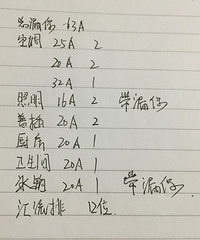 总漏保 63A
空调 25A 2
20A 2
32A 1
照明 16A 2 带漏保
普插 20A 2
厨房 20A 1
卫生间 20A 1
冰箱 20A 1 带漏保
汇流排 12位